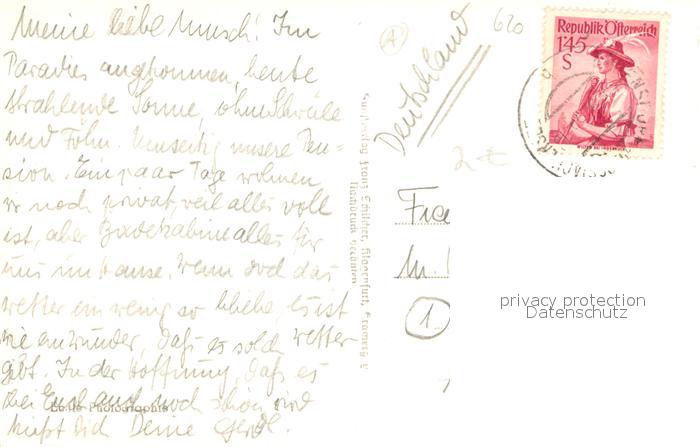 Meine liebe Musch! Im
Paradies angekommen, heute
strahlende Sonne, ohne Schwüle
und Föhn. Umseitig unsere Pen-
sion. Ein paar Tage wohnen
wir noch privat, weil alles voll
ist, aber Badekabine alles für
uns im Hause. Wenn doch das
Wetter ein wenig so bliebe, es ist
wie ein Wunder, daß es solch Wetter
gibt. In der Hoffnung, daß es
bei Euch auch noch schön wird
küßt Dich Deine Gerdl.
Echte Photographie
Franz Schilcher, Klagenfurt,
Nachdruck verboten
4
Deutschland
620
2-€
Republik Österreich
1'45
S
Fra
M.
1
privacy protection
Datenschutz